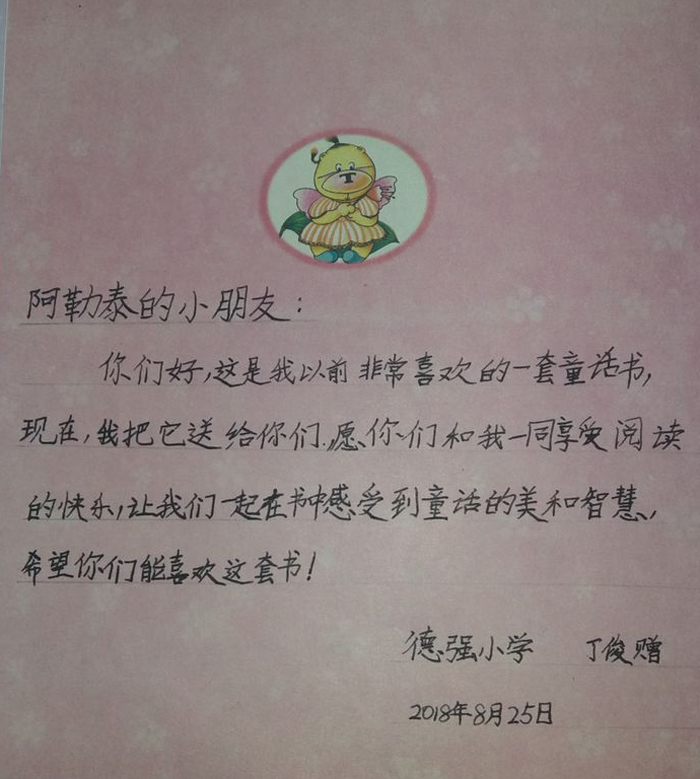 阿勒泰的小朋友：
你们好,这是我以前非常喜欢的一套童话书,
现在,我把它送给你们,愿你们和我一同享受阅读
的快乐,让我们一起在书中感受到童话的美和智慧,
希望你们能喜欢这套书!
德强小学 丁俊赠
2018年8月25日